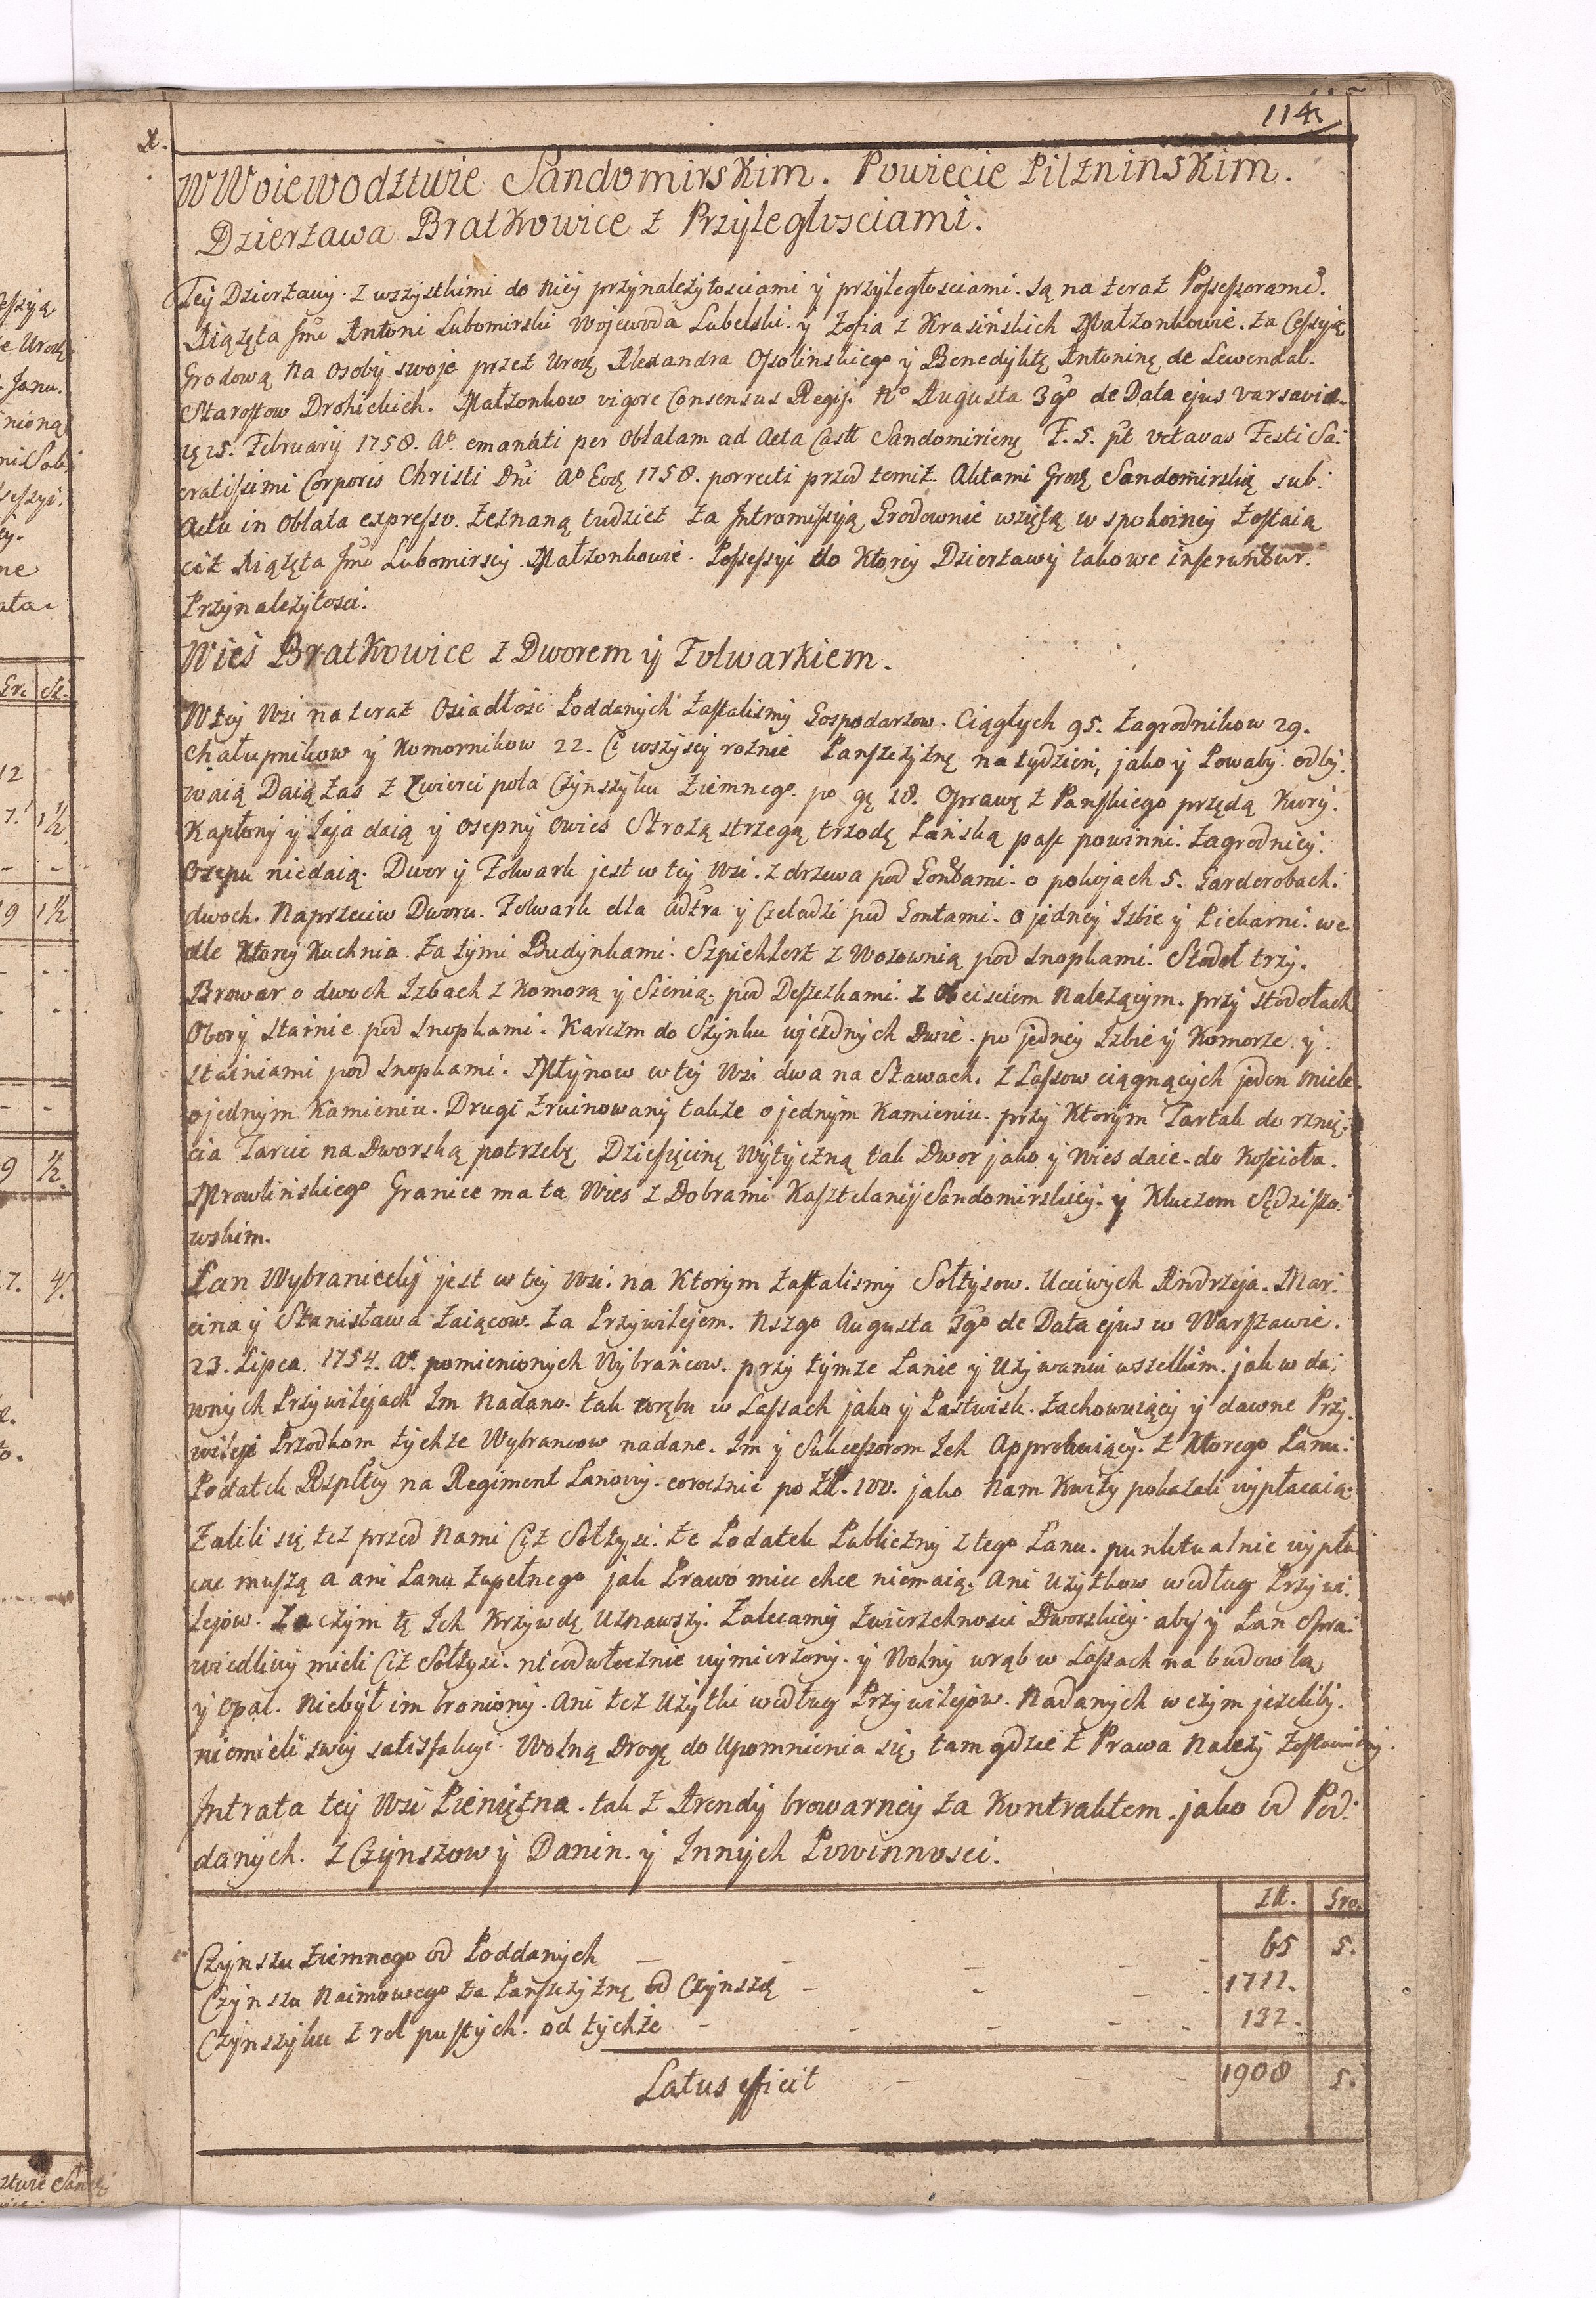 114
W Woiewodztwie Sandomirskim. Powiecie Pilznińskim.
Dzierżawa Bratkowice z Przyległosciami.
Tey Dzierżawy z wszystkimi do niey przynależytosciami y przyległosciami. są na teraz Possessorami.
Xiążęta Jmc Antoni Lubomirski Wojewoda Lubelski. y Zofia z Krasińskich Małżonkowie. za Cessyją
Grodową na osoby swoje przez Urodz. Alexandra Ossolinskiego y Benedyktę Antoninę de Lewendal.
Starostow Drohickich. Małżonkow vigore Consensus Regij. No Augusta 3go de Data ejus Varsaviæ.
25. February 1758. Ao emanati per Oblatam ad Acta Castr Sandomiriens F. 5. pt octavas Festi Sa:
cratissimi Corporis Christi Dni Ao Eod 1758. porrecti przed temiż. Aktami Grodz Sandomirskią sub.
Actu in Oblata expresso. zeznaną tudziez za Intromissyją Grodownie wziętą w spokoiney zostaią
ciż Xiążęta Jmc Lubomirscy. Małżonkowie. Possessyi do Ktorey Dzierżawy takowe inseruntur.
Przynależytosci.
Wieś Bratkowice z Dworem y Folwarkiem.
W tey Wsi na teraz Osiadłości Poddanych zastalismy Gospodarzow. Ciągłych 95. Zagrodnikow 29.
Chałupnikow y Komornikow 22. Ci wszyscy roznie Panszczyznę na tydzień, jako y Powaby. odby:
waią Daią zas z Cwierci pola Czynszyku Ziemnego. po gr 18. Oprawę z Panskiego przędą Kury.
Kapłony y Jaja daią y osepny owies Strożą strzegą trzodę Pańską pasc powinni. Zagrodnicy.
Osepu niedaią. Dwor y Folwark jest w tey Wsi. z drzewa pod Gontami. o pokojach 5. Garderobach.
dwoch. Naprzeciw Dworu. Folwark dla Adtra y Czeladzi pod Gontami. o jedney Izbie y Piekarni. we
dle Ktory Kuchnia. za tymi Budynkami. Szpichlerz z Wozownią pod snopkami. Stodoł trzy.
Browar o dwoch Izbach z Komorą y Sienią. pod Deszczkami. z Obeisciem Należącym. przy stodołach
Obory stainie pod snopkami. Karczm do Szynku ujezdnych dwie. po jedney Izbie y Komorze. y.
stainiami pod snopkami. Młynow w tey Wsi dwa na Stawach. z Lassow ciągnących jeden miele
o jednym Kamieniu. Drugi zruinowany także o jednym Kamieniu. przy Ktorym Tartak do rznię:
cia Tarcic na Dworską potrzebę Dziesięcinę Wytyczną tak Dwor jako y Wies daie. do Kościoła.
Mrowlińskiego Granice ma ta Wies z Dobrami Kasztelanij Sandomirskiey. y Kluczem Sędziszo:
wskim.
Łan Wybraniecky jest w tey Wsi. na Ktorym zastalismy Sołtysow. Uczciwych Andrzeja. Mar:
cina y Stanisława Zaiącow. za Przywilejem. Nszgo Augusta 3go de Data ejus w Warszawie.
23. Lipca. 1754. Ao. pomienionych Wybrańcow. przy tymże Łanie y Używaniu wszelkim. jak w da:
wnych Przywilejach Im Nadano. tak wrębu w Lassach jako y Pastwisk. Zachowuiący y dawne Przy:
wileje Przodkom tychże Wybrancow nadane. Im y Sukcessorom Ich Approbuiący. z Ktorego Łanu:
Podatek Rzplty na Regiment Łanowy. corocznie po Zł. 100. jako Nam Kwity pokazali wypłacaią.
Zalili się też przed Nami Ciż Sołtysi. że Podatek Publiczny z tego Łanu. punktualnie wypła
cac muszą a ani Łanu zupełnego jak Prawo miec chce niemaią. Ani Użytkow według Przywi:
lejów. Zaczym tę Ich Krzywdę Uznawszy. Zalecamy Zwierzchnosci Dworskiey. aby y Łan Spra:
wiedliwy mieli Ciż Sołtysi. nieodwłocznie wymierzony. y Wolny wrąb w Lassach na budowlą
y opał. Niebył im broniony. Ani też Użytki według Przywilejów. Nadanych w czym jeżeliby.
niemieli swey satisfakcyi. Wolną Drogę do Upomnienia się, tam gdzie z Prawa Należy zostawuiemy.
Intrata tey Wsi Pieniężna. tak z Arendy browarney za Kontraktem. jako od Pod:
danych. z Czynszow y Danin. y Innych Powinnosci.
Zł. Gro.
Czynszu Ziemnego od Poddanych 65 5.
Czynszu Naimowego za Pańszczyznę od Czynszą 1711.
Czynszyku z rol pustych. od tychże 132.
Latus efficit 1908 5.